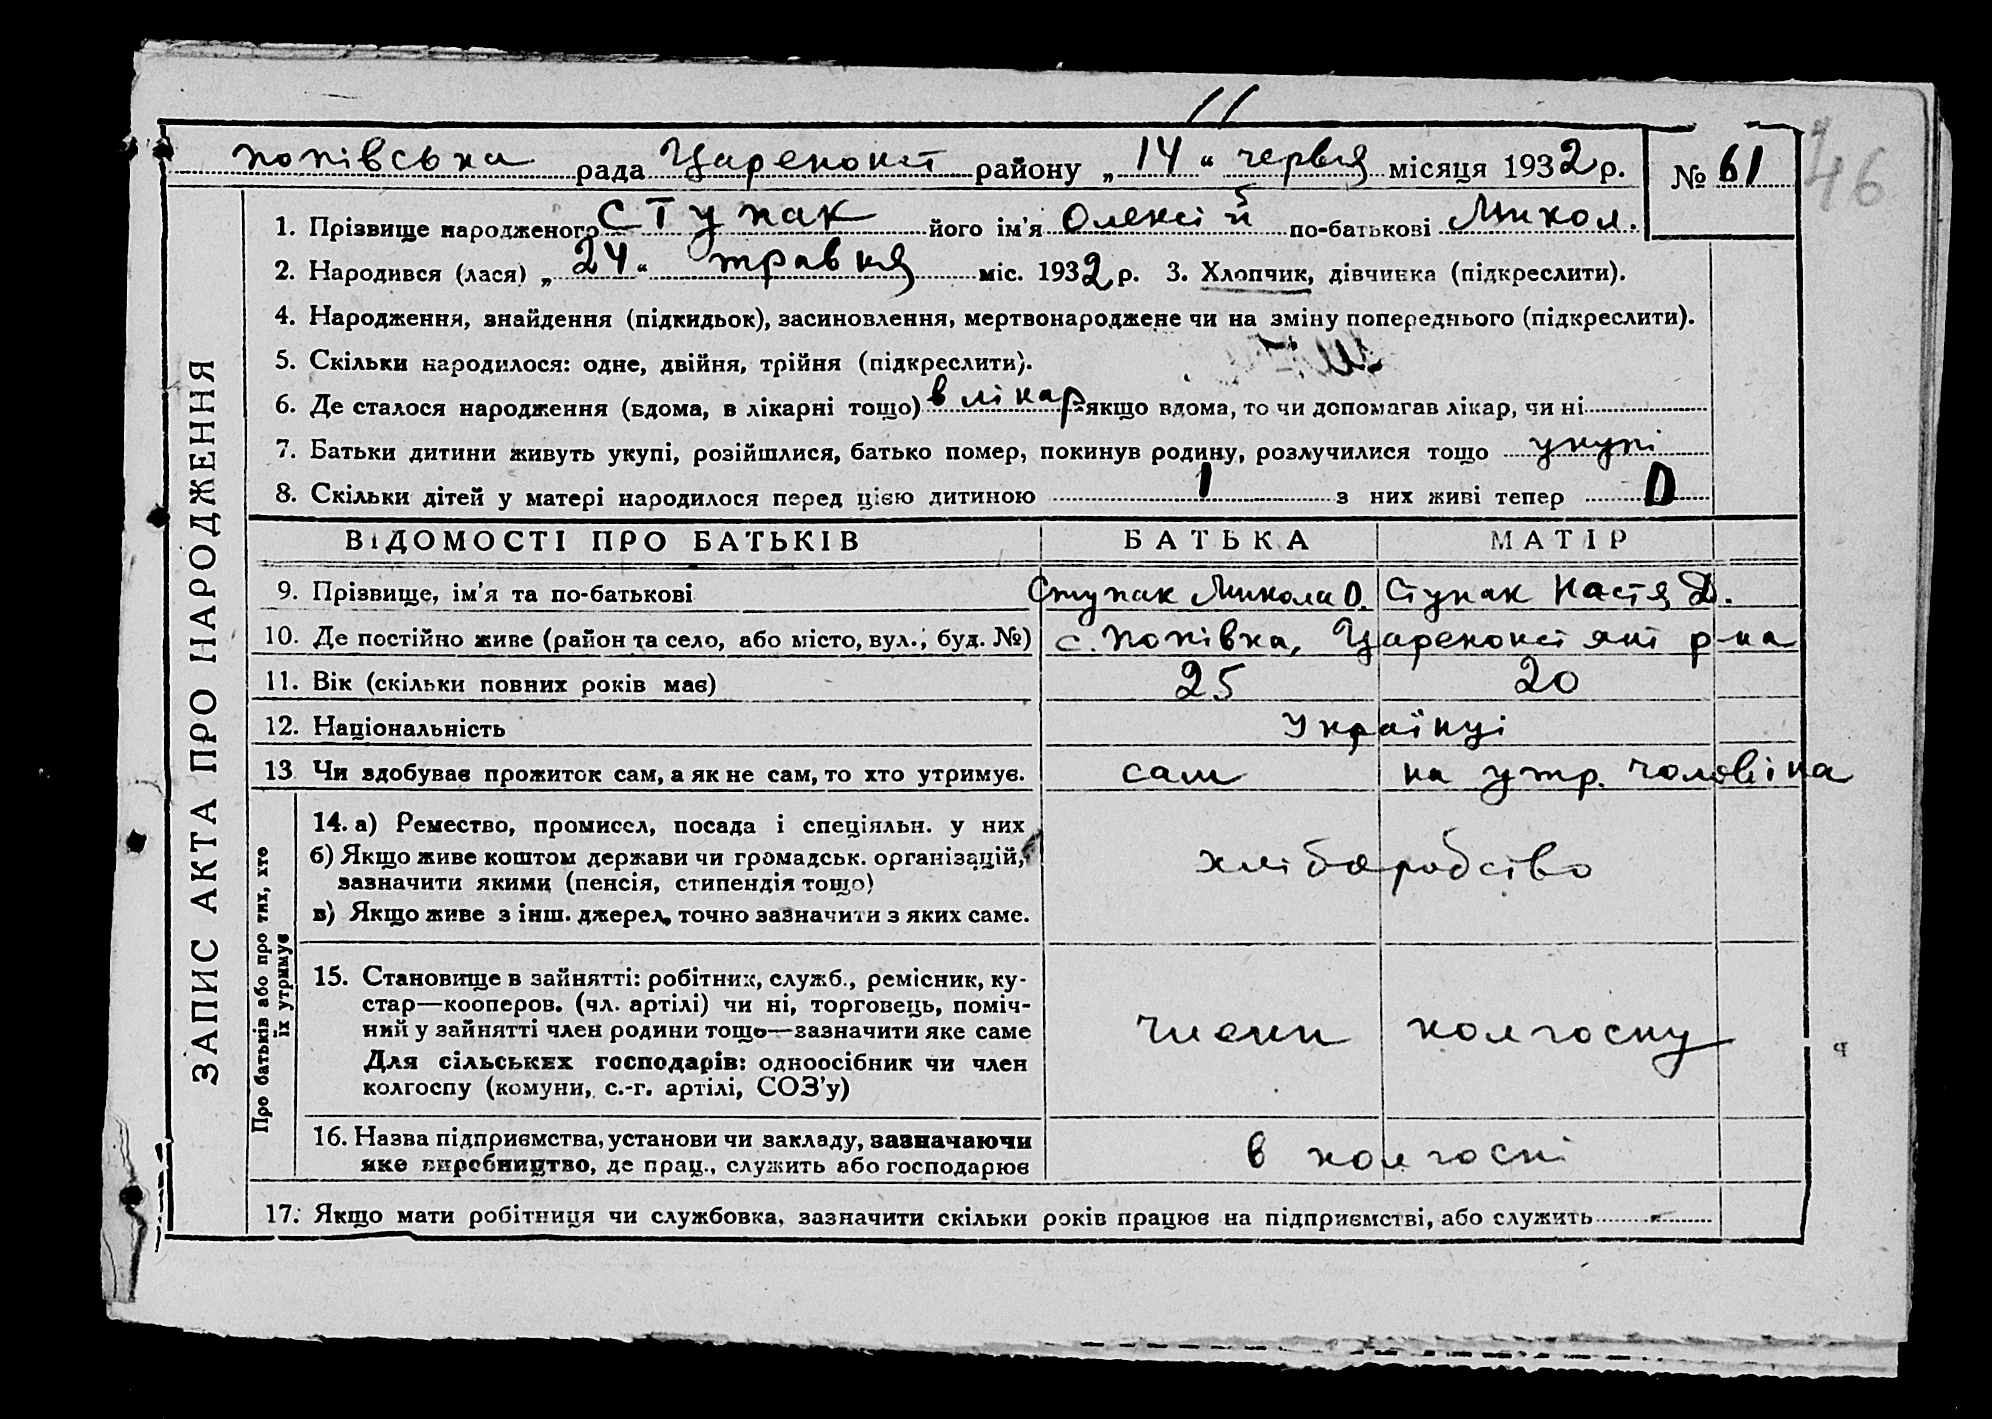 Попівська рада Царекокст району „14“ червня місяця 1932 р. № 61
46
1. Прізвище народженого Ступак його ім'я Олексій по-батькові Микол.
2. Народився (лася) „24“ травня міс. 1932 р. 3. Хлопчик, дівчинка (підкреслити).
4. Народження, знайдення (підкидьок), засиновлення, мертвонароджене чи на зміну попереднього (підкреслити).
5. Скільки народилося: одне, двійня, трійня (підкреслити).
6. Де сталося народження (вдома, в лікарні тощо) в лікар. якщо вдома, то чи допомагав лікар, чи ні
7. Батьки дитини живуть укупі, розійшлися, батько помер, покинув родину, розлучилися тощо укупі
8. Скільки дітей у матері народилося перед цією дитиною 1 з них живі тепер 0
ВІДОМОСТІ ПРО БАТЬКІВ БАТЬКА МАТІР
9. Прізвище, ім'я та по-батькові Ступак Микола О. Ступак Настя Д.
10. Де постійно живе (район та село, або місто, вул., буд. №) с. Попівка, р-на
11. Вік (скільки повних років має) 25 20
12. Національність Українці
13 Чи здобуває прожиток сам, а як не сам, то хто утримує. сам на утр. чоловіка
14. а) Ремество, промисел, посада і спеціяльн. у них
б) Якщо живе коштом держави чи громадськ. організацій,
зазначити якими (пенсія, стипендія тощо)
в) Якщо живе з інш. джерел, точно зазначити з яких саме.
хліборобство
15. Становище в зайнятті: робітник, служб., ремісник, ку-
стар—кооперов. (чл. артілі) чи ні, торговець, поміч-
ний у зайнятті член родини тощо—зазначити яке саме
Для сільських господарів: одноосібник чи член
колгоспу (комуни, с.-г. артілі, СОЗ'у)
члени колгоспу
16. Назва підприємства, установи чи закладу, зазначаючи
яке виробництво, де прац., служить або господарює
в колгоспі
17. Якщо мати робітниця чи службовка, зазначити скільки років працює на підприємстві, або служить
ЗАПИС АКТА ПРО НАРОДЖЕННЯ
Про батьків або про тих, хто
їх утримує